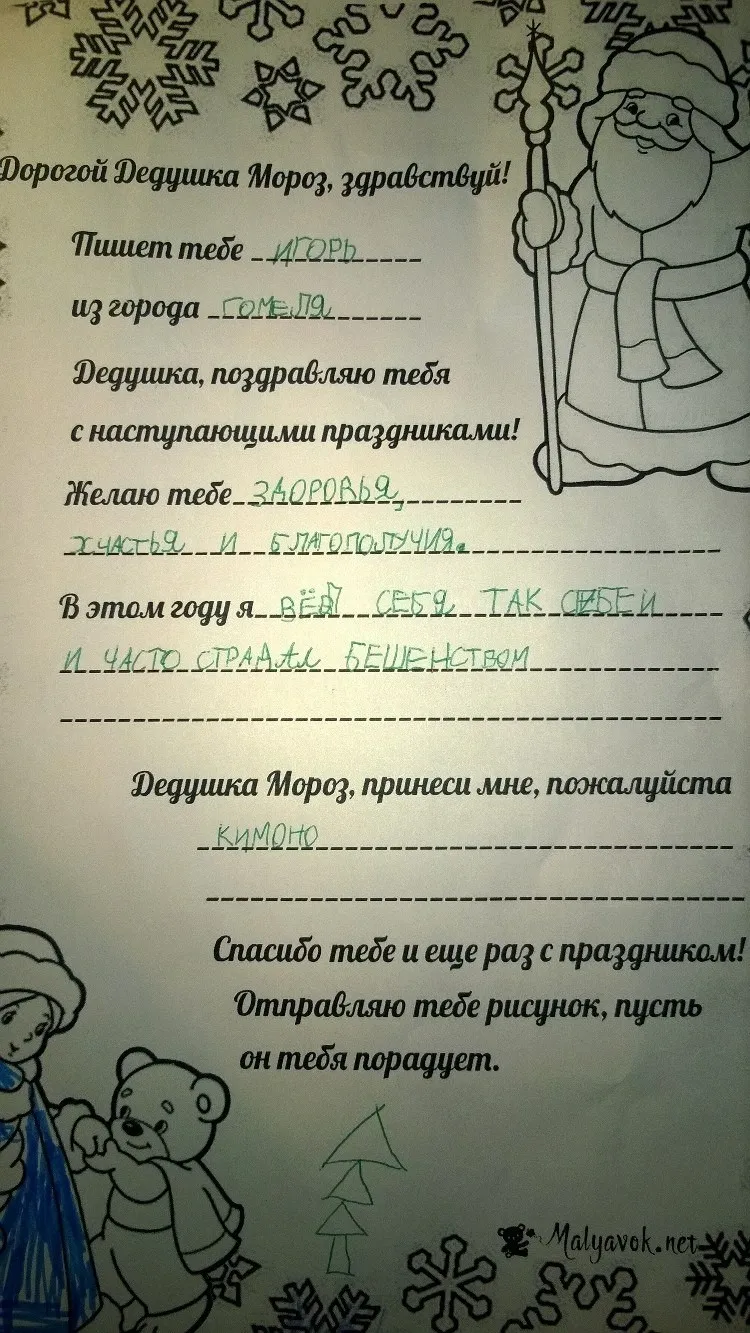 Дорогой Дедушка Мороз, здравствуй!
Пишет тебе ИГОРЬ
из города ГОМЕЛЯ
Дедушка, поздравляю тебя
с наступающими праздниками!
Желаю тебе ЗДОРОВЬЯ,
ХЧАСТЬЯ И БЛАГОПОЛУЧИЯ.
В этом году я ВЁЛ СЕБЯ ТАК СЕБЕ И
И ЧАСТО СТРАДАЛ БЕШЕНСТВОМ
Дедушка Мороз, принеси мне, пожалуйста
КИМОНО
Спасибо тебе и еще раз с праздником!
Отправляю тебе рисунок, пусть
он тебя порадует.
Malyavok.net